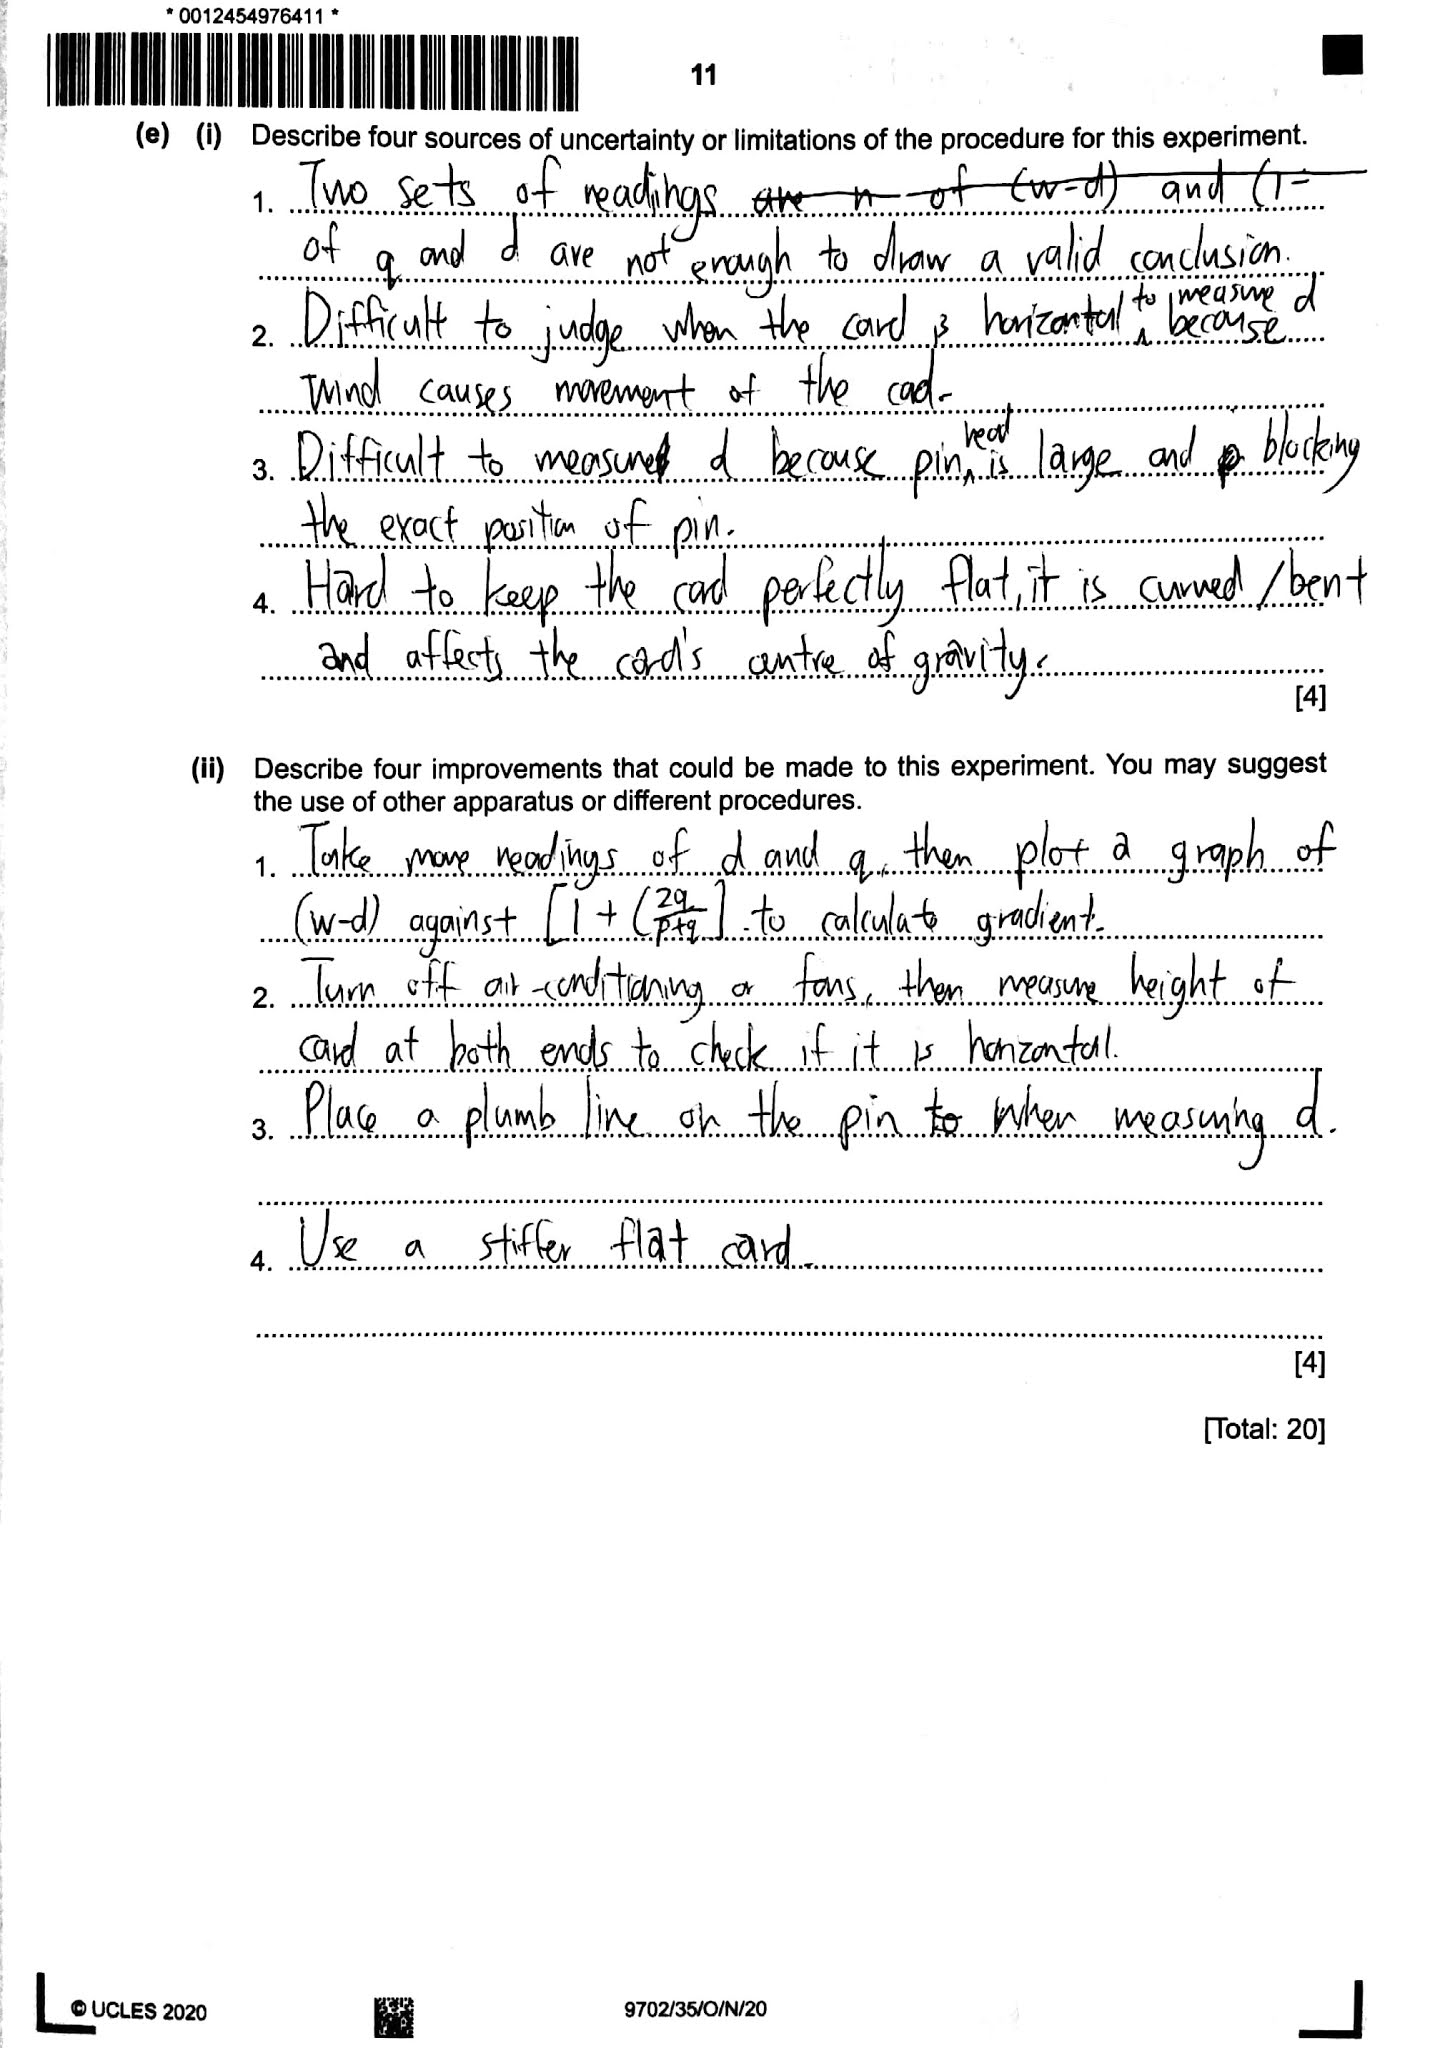 * 0012454976411 *
11
(e) (i) Describe four sources of uncertainty or limitations of the procedure for this experiment.
1. Two sets of readings are n of (w-d) and (1-
of q and d are not enough to draw a valid conclusion.
to measure d
2. Difficult to judge when the card is horizontal because
wind causes movement of the cad.
head
3. Difficult to measure d because pin is large and p blocking
the exact position of pin.
4. Hard to keep the card perfectly flat, it is curved / bent
and affects the card's centre of gravity.
[4]
(ii) Describe four improvements that could be made to this experiment. You may suggest
the use of other apparatus or different procedures.
1. Take more readings of d and q, then plot a graph of
(w-d) against [1 + (2q/p+q] to calculate gradient.
2. Turn off air-conditioning or fans, then measure height of
card at both ends to check if it is horizontal.
3. Place a plumb line on the pin to when measuring d.
4. Use a stiffer flat card.
[4]
[Total: 20]
© UCLES 2020
9702/35/O/N/20